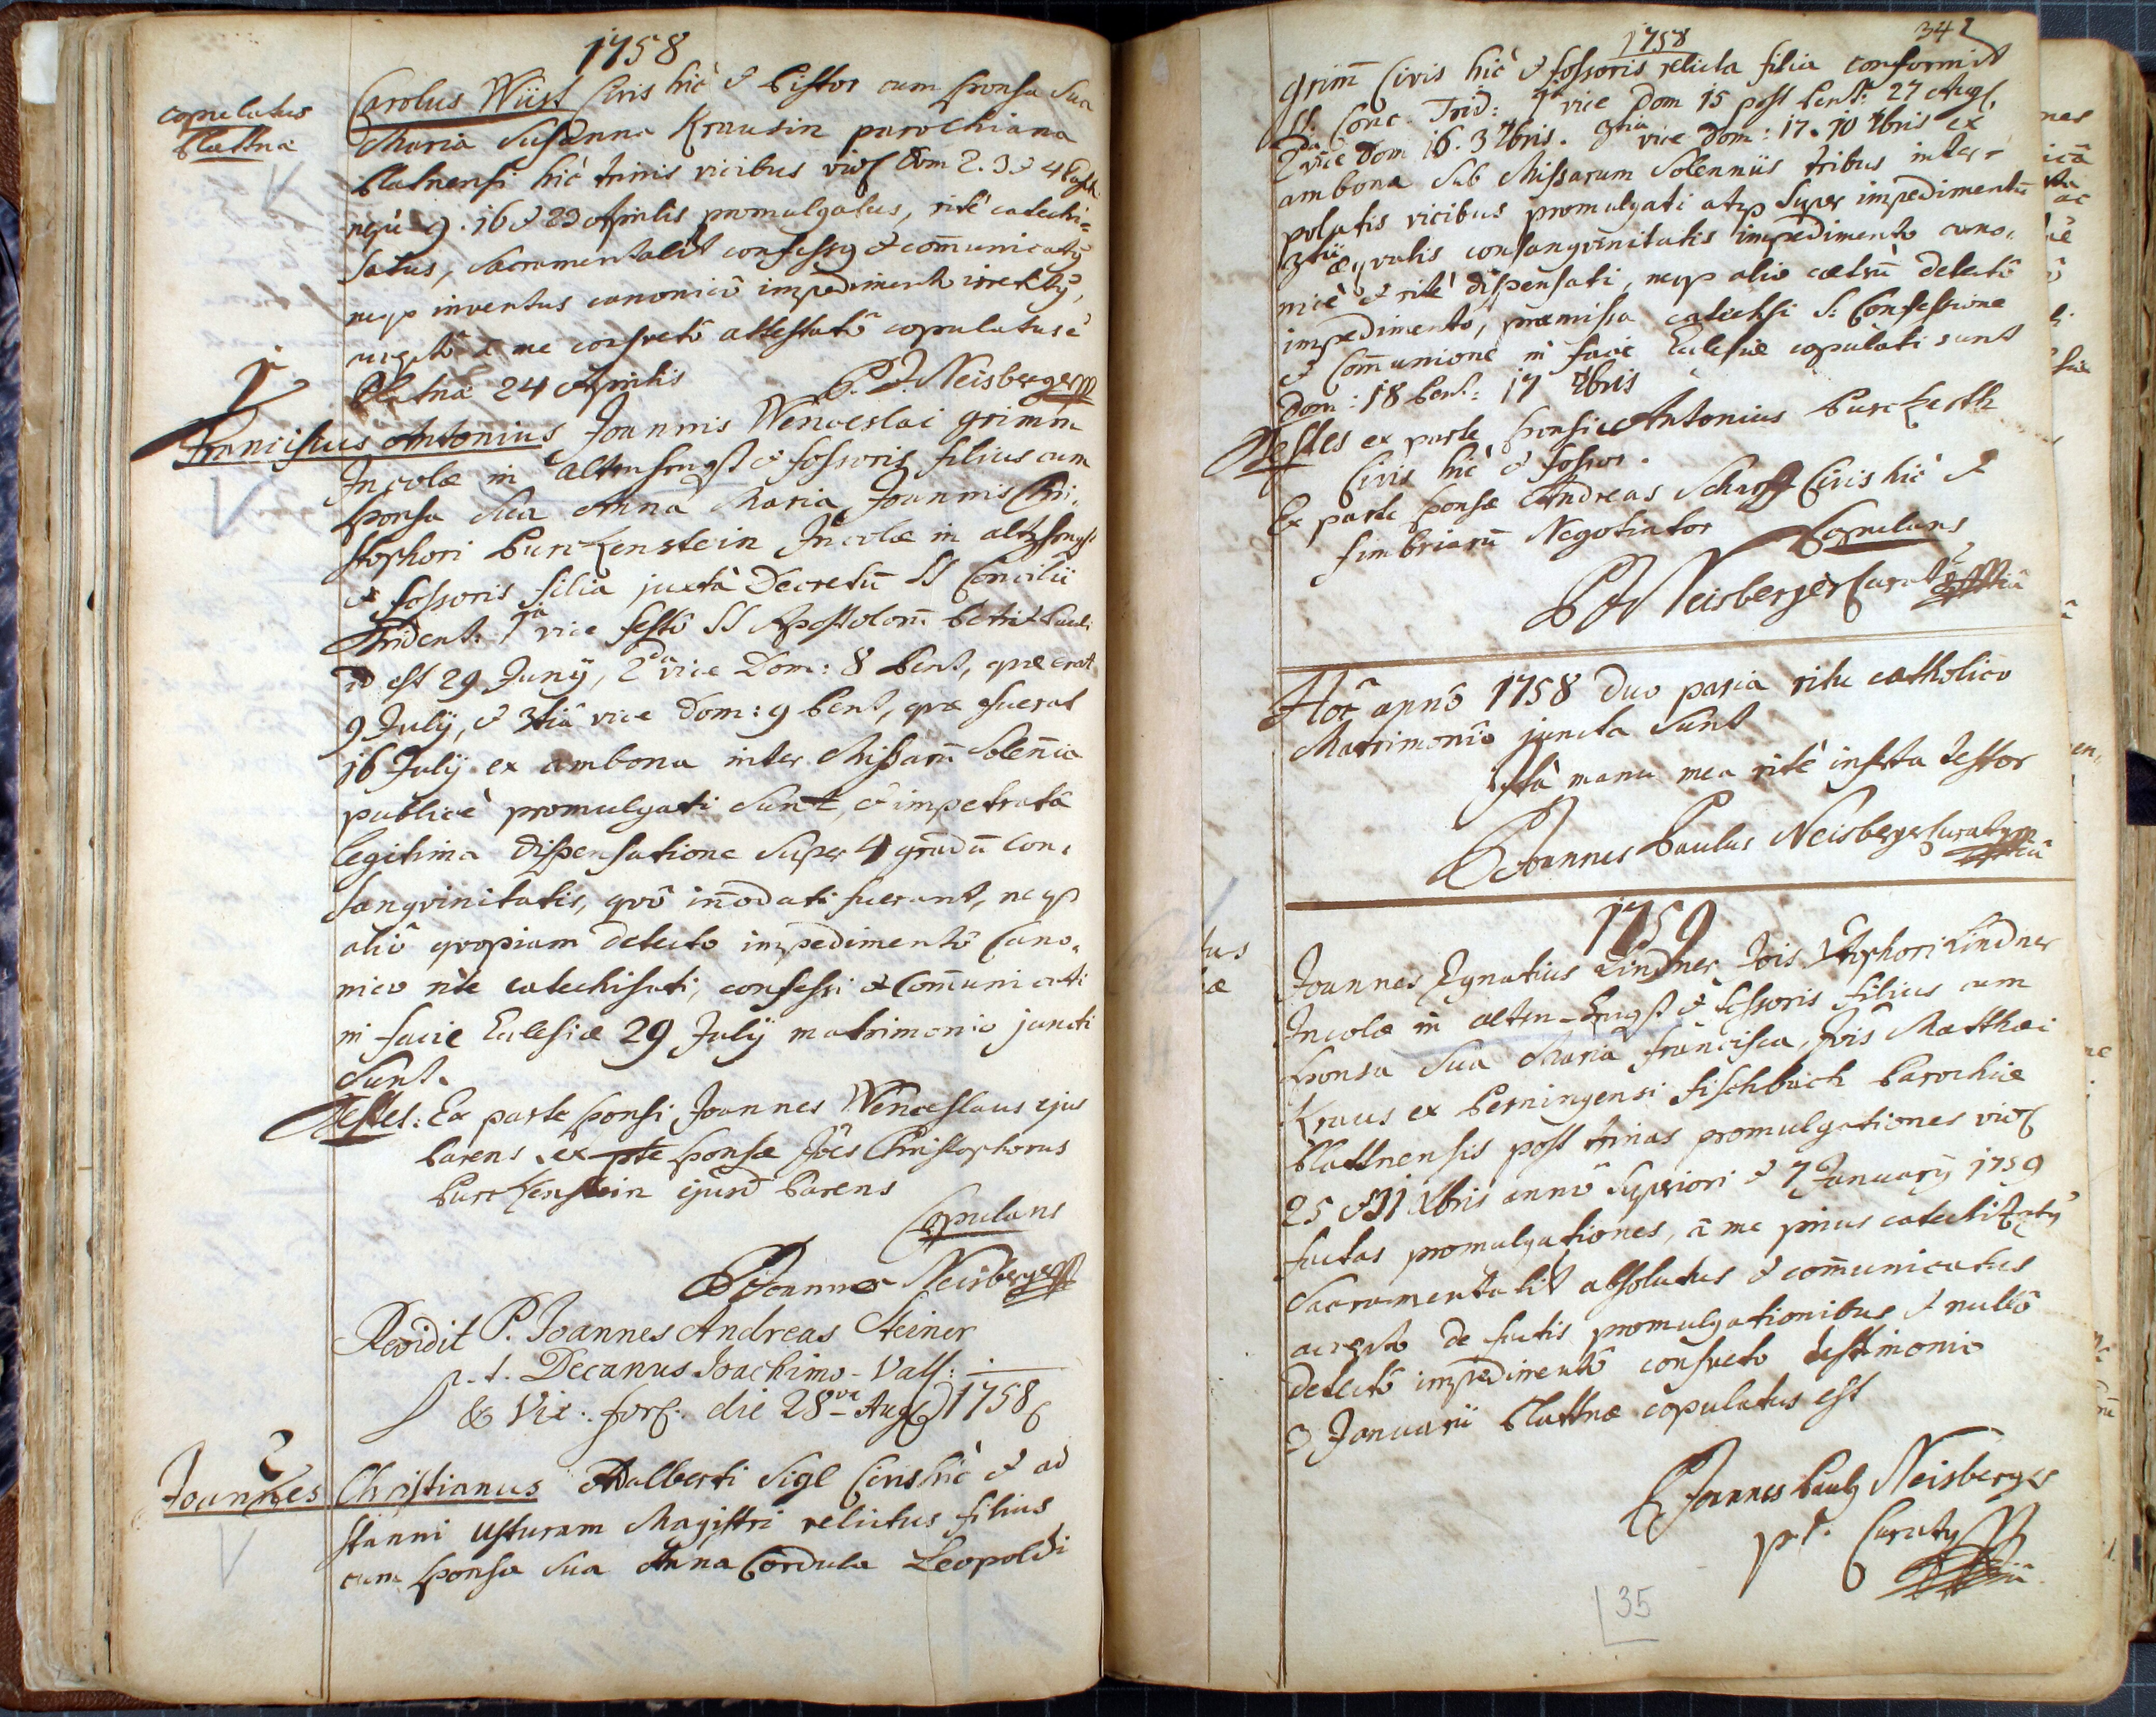 1758
copulatus
Blattnæ
Carolus Wüst Civis hic & Pistor cum Sponsa Sua
Maria Susanna Krausin parochiana
Blatnensi hic trinis vicibus vidl Dom 2. 3. & 4 Pasch
nequè 9. 16 & 23 Aprilis promulgatus, ritè catechi=
satus, Sacramentalit confessq & com̄unicatq
neqз inventus canonicô impedimentô
acceptô à me consvetô attestatô copulatus è
Blatnæ 24 Aprilis P. J. Neisberger mp
1
Franciscus Antonius Joannis Wenceslai Grimm
Incolæ in Altensengst & fossoris filius cum
Sponsa Sua Anna Maria Joannis Chri-
stophori Purckenstein Incolæ in
& fossoris filia juxtà Decretū SS Concilii
Trident: 1mâ vice festô SS Apostolorū Petri & Pauli
id est 29 Junÿ, 2dâ vice Dom: 8 Pent, quæ erat
9 Julÿ, & 3tiâ vice Dom: 9 Pent, quæ fuerat
16 Julÿ ex ambona inter Missarū Solen̄ia
publicè promulgati Sunt, & impetratâ
legitima dispensatione Super 4 gradū con-
sangvinitatis, qvô in̄odati fuerant, neqз
aliô qvopiam detecto impedimentô Cano-
nico rite catechisati, confessi & Com̄unicati
in facie Ecclesiæ 29 Julÿ matrimonio juncti
Sunt.
Testes: Ex parte Sponsi Joannes Wenceslaus ejus
Parens, ex pte Sponsæ Jões Christophorus
Purckenstein ejusd Parens
Copulans
P Joannes Neisberger mp
Revidit P. Joannes Andreas Steiner
p. t. Decanus Joachimo-Vall:
& Vic: for: die 28va Aug 1758
2
Joannes Christianus Adalberti Sigl Civis hic & ad
stanni usturam Magistri relictus filius
cum Sponsa Sua Anna Cordula Leopoldi
1758
341
Grim̄ Civis hic & fossoris relicta filia conformit
SS. Conc. Trid: 1mâ vice Dom 15 post Pent: 27 Aug,
2dâ vice Dom 16. 3 7bris. 3tiâ vice Dom: 17. 10 7bris ex
ambona Sub Missarum Solenniis tribus inter-
polatis vicibus promulgati atqз Super impedimentū
3tii æqvalis consangvinitatis impedimento cano-
nicè & ritè dispensati, neqз alio cæterū detectô
impedimentô, præmissa catechsi S: Confessione
& Com̄unione in facie Ecclesiæ copulati sunt
Dom: 18 Pent: 17 7bris
Testes ex parte Sponsi Antonius Purckerth
Civis hic & fossor.
Ex parte Sponsæ Andreas Scharff Civis hic &
fimbriarū Negotiator
Copulans
P J Neisberger Curatq
Hoc annô 1758 Duo paria ritu catholico
Matrimoniô juncta Sunt
Ista manu mea ritè inserta testor
P Joannes Paulus Neisberger Curatq
1759
Joannes Ignatius Lindner Jois Xtophori Lindner
Incolæ in Alten-Sengst & fossoris filius cum
Sponsa Sua Maria Francisca, Jois Matthæi
Kraus ex Perningensi Fischbach Parochiæ
Blattnensis post trinas promulgationes vidl
25 & 31 Xbris annô Superiori & 7 Januarÿ 1759
factas promulgationes, à me prius catechizatq
Sacramentalit absolutus & com̄unicatus
acceptô de factis promulgationibus & nullô
detectô impedimentô consveto testimonio
Januarii Blattnæ copulatus est
P Joannes Paulq Neisberger
p.t. Curatq
35